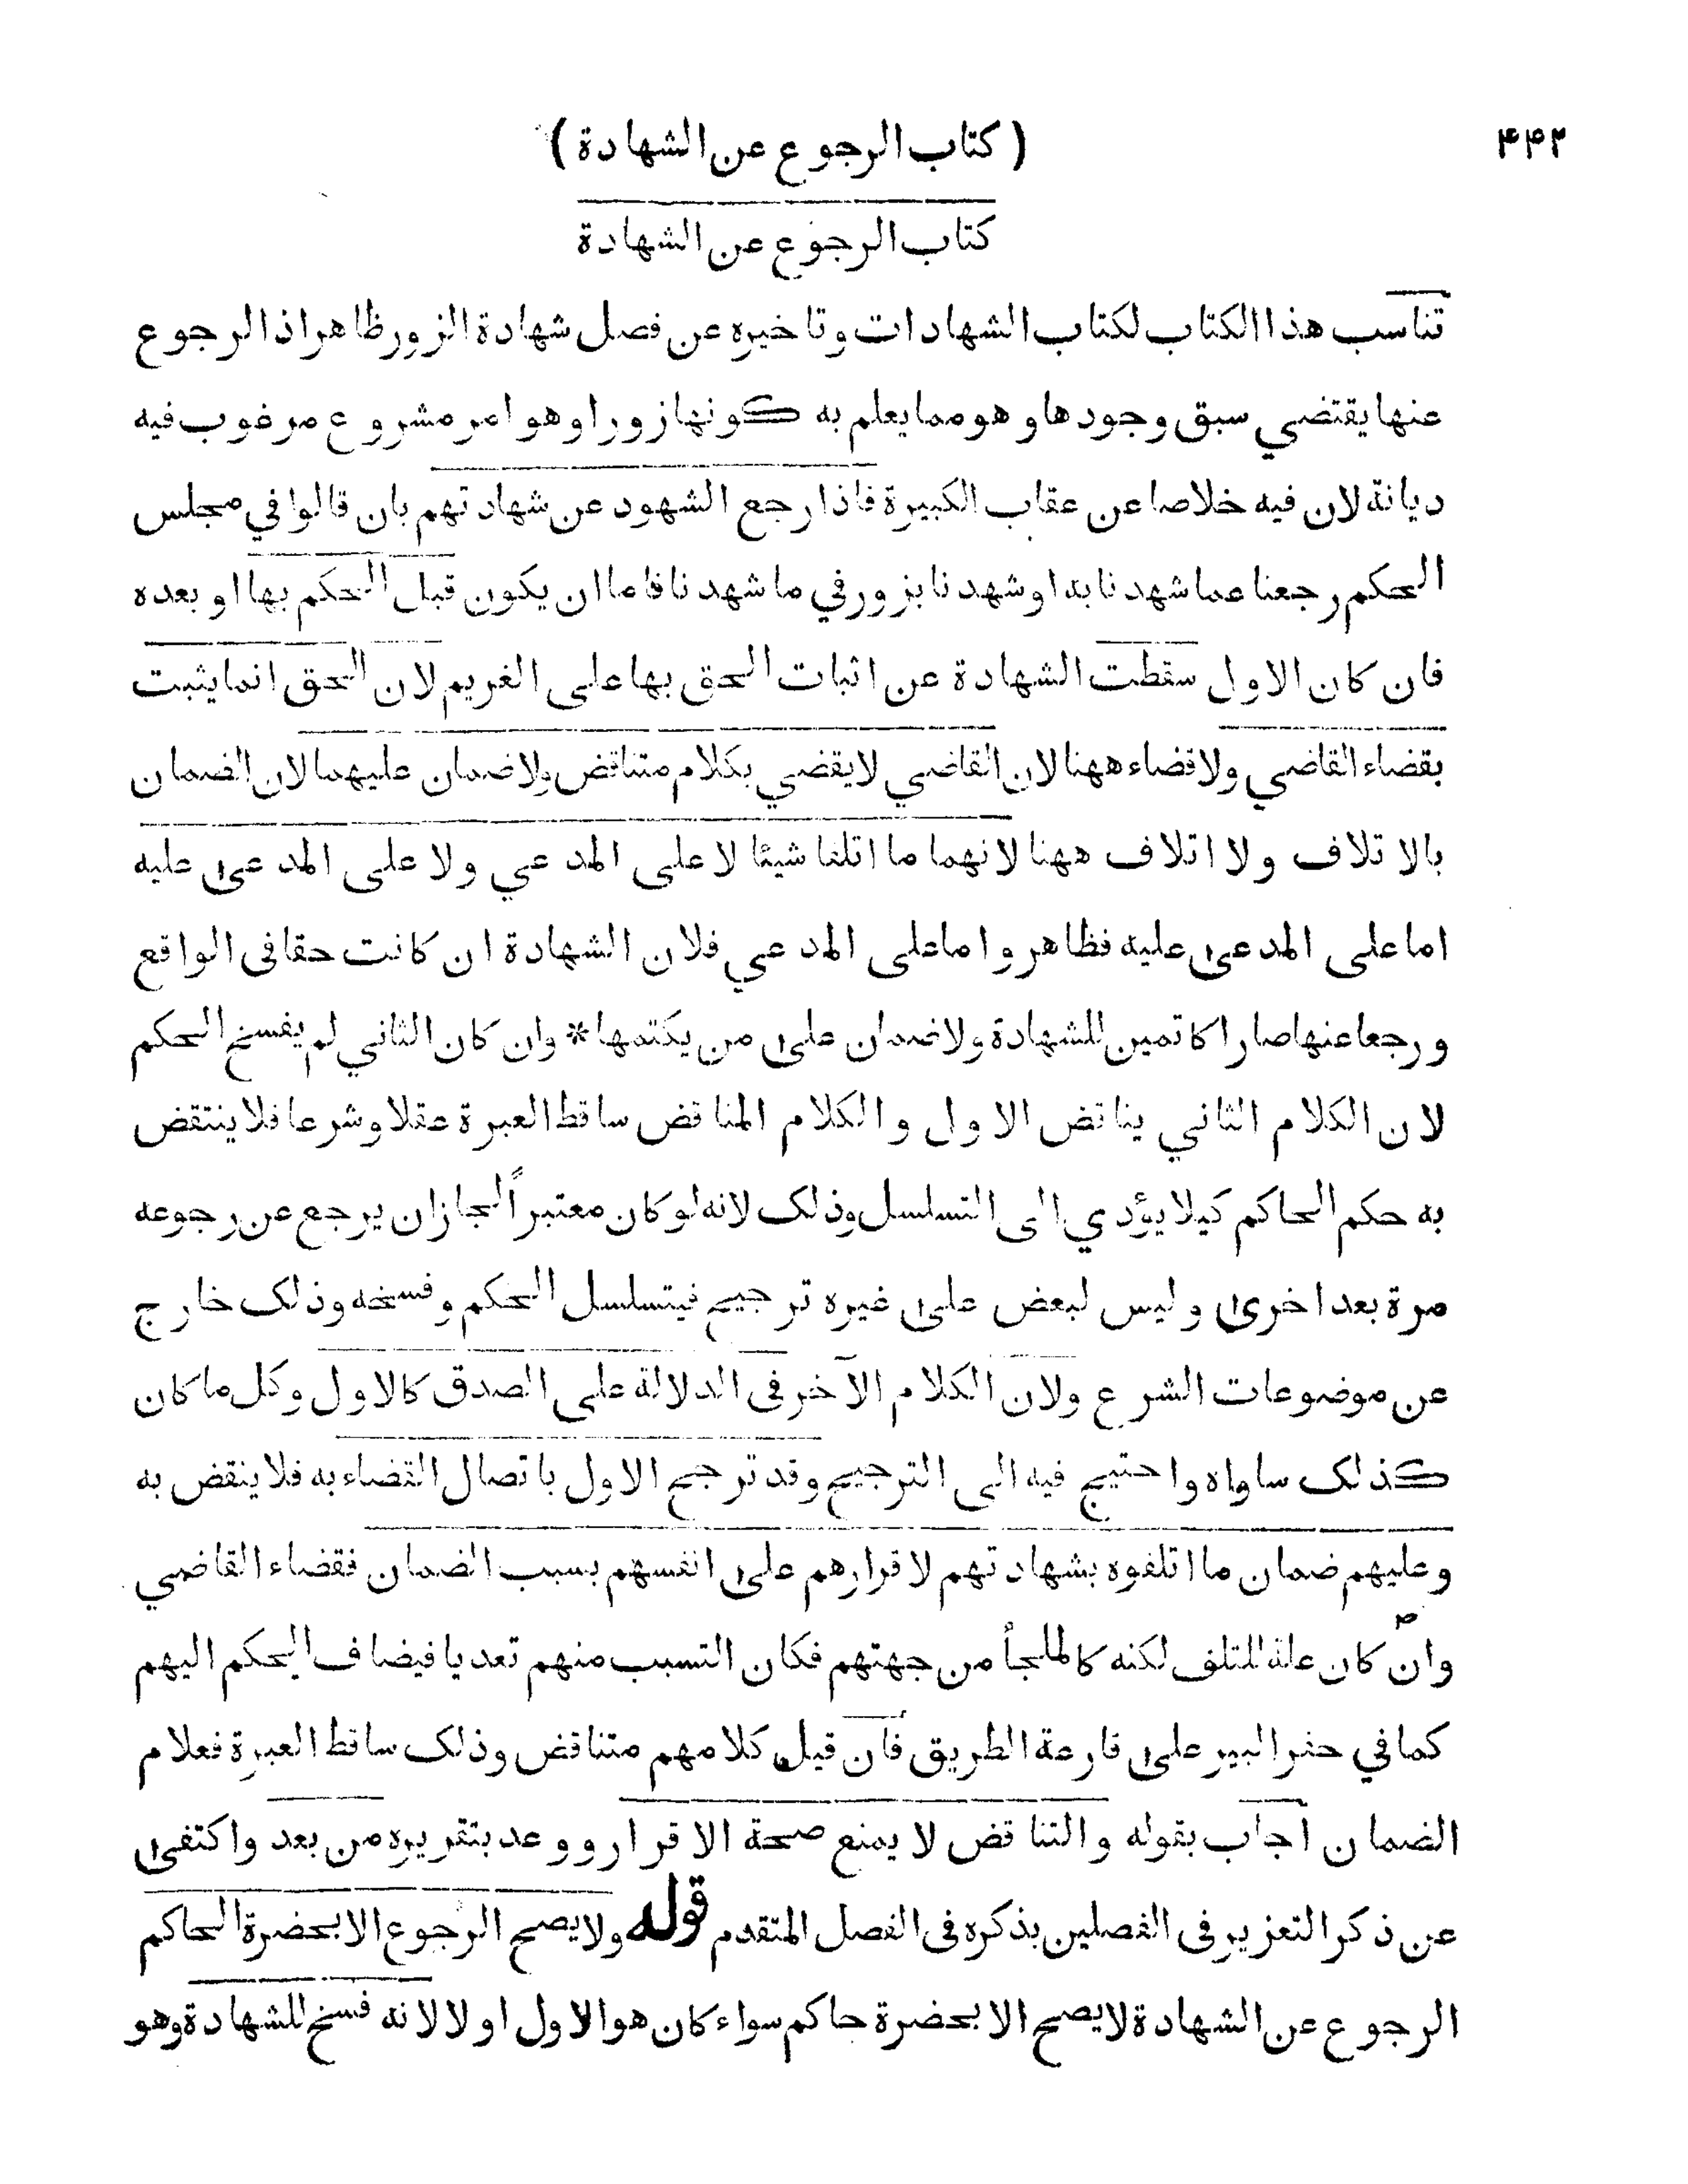 ( كتاب الرجوع عن الشهادة ) ۴۴۲
كتاب الرجوع عن الشهادة
تناسب هذا الكتاب لكتاب الشهادات وتاخيره عن فصل شهادة الزور ظاهر اذ الرجوع
عنها يقتضي سبق وجودها وهو مما يعلم به كونها زورا وهو امر مشروع مرغوب فيه
ديانة لان فيه خلاصا عن عقاب الكبيرة فاذا رجع الشهود عن شهادتهم بان قالوا في مجلس
الحكم رجعنا عما شهدنا به او شهدنا بزور في ما شهدنا فاما ان يكون قبل الحكم بها او بعده
فان كان الاول سقطت الشهادة عن اثبات الحق بها على الغريم لان الحق انما يثبت
بقضاء القاضي ولا قضاء ههنا لان القاضي لا يقضي بكلام متناقض ولا ضمان عليهما لان الضمان
بالاتلاف ولا اتلاف ههنا لانهما ما اتلفا شيئا لا على المدعي ولا على المدعى عليه
اما على المدعى عليه فظاهر واما على المدعي فلان الشهادة ان كانت حقا في الواقع
ورجعا عنها صارا كاتمين للشهادة ولا ضمان على من يكتمها * وان كان الثاني لم يفسخ الحكم
لان الكلام الثاني يناقض الاول والكلام المناقض ساقط العبرة عقلا وشرعا فلا ينتقض
به حكم الحاكم كيلا يؤدي الى التسلسل وذلك لانه لو كان معتبراً لجاز ان يرجع عن رجوعه
مرة بعد اخرى وليس لبعض على غيره ترجيح فيتسلسل الحكم وفسخه وذلك خارج
عن موضوعات الشرع ولان الكلام الآخر في الدلالة على الصدق كالاول وكل ما كان
كذلك ساواه واحتيج فيه الى الترجيح وقد ترجح الاول باتصال القضاء به فلا ينقض به
وعليهم ضمان ما اتلفوه بشهادتهم لاقرارهم على انفسهم بسبب الضمان فقضاء القاضي
وان كان علة للتلف لكنه كالملجأ من جهتهم فكان التسبب منهم تعديا فيضاف الحكم اليهم
كما في حفر البير على قارعة الطريق فان قيل كلامهم متناقض وذلك ساقط العبرة فعلام
الضمان اجاب بقوله والتناقض لا يمنع صحة الاقرار ووعد بتقريره من بعد واكتفى
عن ذكر التعزير في الفصلين بذكره في الفصل المتقدم قوله ولا يصح الرجوع الا بحضرة الحاكم
الرجوع عن الشهادة لا يصح الا بحضرة حاكم سواء كان هو الاول او لا لانه فسخ للشهادة وهو